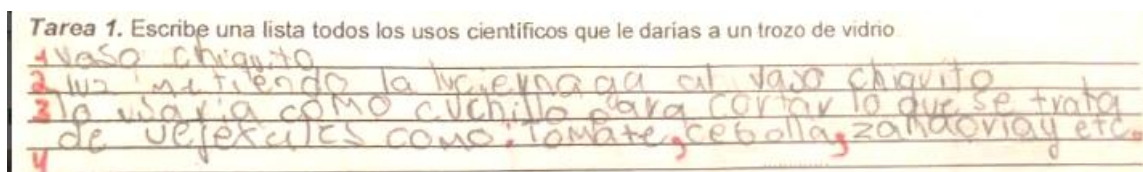 Tarea 1. Escribe una lista todos los usos científicos que le darías a un trozo de vidrio
1 vaso chiquito
2 luz metiendo la luciernaga al vaso chiquito
3 lo usaria como cuchillo para cortar lo que se trata
de vejetales como: tomate, cebolla, zanaoria y etc.
4